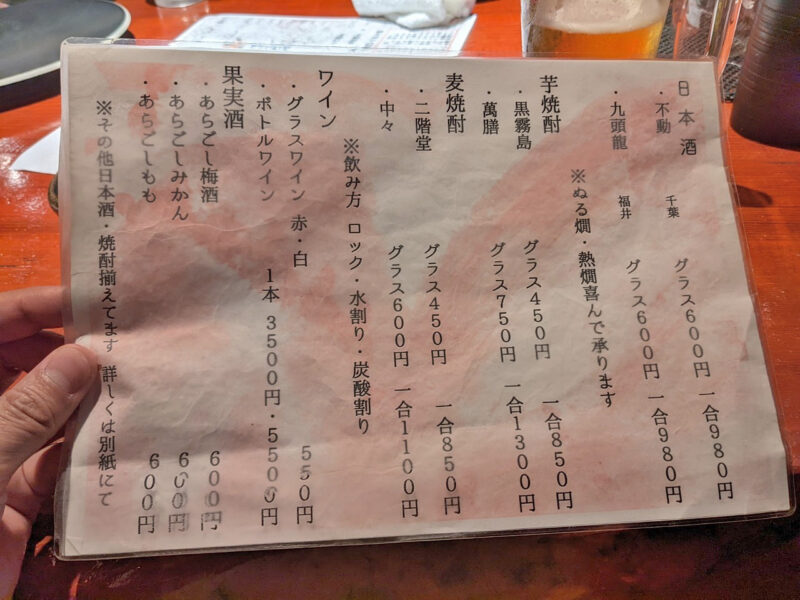 日本酒
・不動 千葉 グラス600円 一合980円
・九頭龍 福井 グラス600円 一合980円
※ぬる燗・熱燗喜んで承ります
芋焼酎
・黒霧島 グラス450円 一合850円
・萬膳 グラス750円 一合1300円
麦焼酎
・二階堂 グラス450円 一合850円
・中々 グラス600円 一合1100円
※飲み方 ロック・水割り・炭酸割り
ワイン
・グラスワイン 赤・白 550円
・ボトルワイン 1本 3500円・5500円
果実酒
・あらごし梅酒 600円
・あらごしみかん 600円
・あらごしもも 600円
※その他日本酒・焼酎揃えてます 詳しくは別紙にて